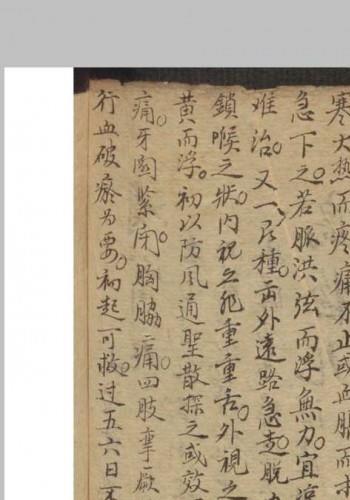 寒大熱而疼痛不止或血脹而
急下之若脈洪弦而浮無力宜
难治又一種 因外遠路急走脱
鎖喉之狀內視之非重重舌外視之
黄而浮初以防風通聖散探之或效
痛牙関紧闭胸脇痛四肢掌厥
行血破瘀為要初起可救过五六日不